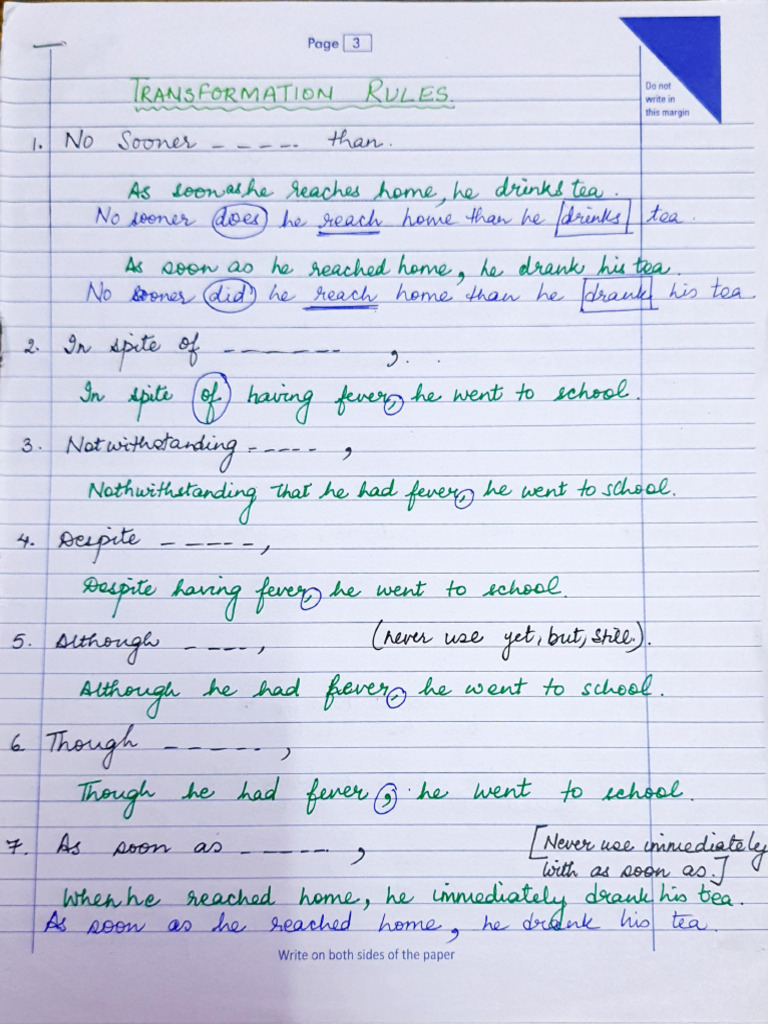 Page 3
Do not
write in
this margin
TRANSFORMATION RULES.
1. No Sooner ----- than.
As soon as he reaches home, he drinks tea.
No sooner does he reach home than he drinks tea.
As soon as he reached home, he drank his tea.
No sooner did he reach home than he drank his tea
2. In spite of ------- ,
In spite of having fever, he went to school.
3. Notwithstanding ----- ,
Nothwithstanding that he had fever, he went to school.
4. Despite ----- ,
Despite having fever, he went to school.
5. Although ---- , (never use yet, but, still.).
Although he had fever, he went to school.
6 Though ----- ,
Though he had fever, he went to school.
7. As soon as ----- , [Never use immediately
with as soon as.]
When he reached home, he immediately drank his tea.
As soon as he reached home, he drank his tea.
Write on both sides of the paper